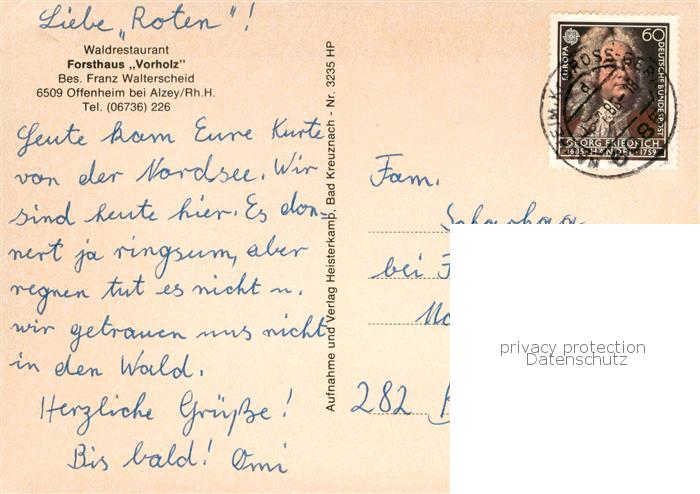 Liebe „Roten"!
Waldrestaurant
Forsthaus „Vorholz"
Bes. Franz Walterscheid
6509 Offenheim bei Alzey/Rh.H.
Tel. (06736) 226
Heute kam Eure Karte
von der Nordsee. Wir
sind heute hier. Es don=
nert ja ringsum, aber
regnen tut es nicht u.
wir getrauen uns nicht
in den Wald.
Herzliche Grüße!
Bis bald! Omi
Aufnahme und Verlag Heisterkamp, Bad Kreuznach - Nr. 3235 HP
EUROPA
60
DEUTSCHE BUNDESPOST
GEORG FRIEDRICH
1685 HÄNDEL 1759
Fam.
bei
282
privacy protection
Datenschutz